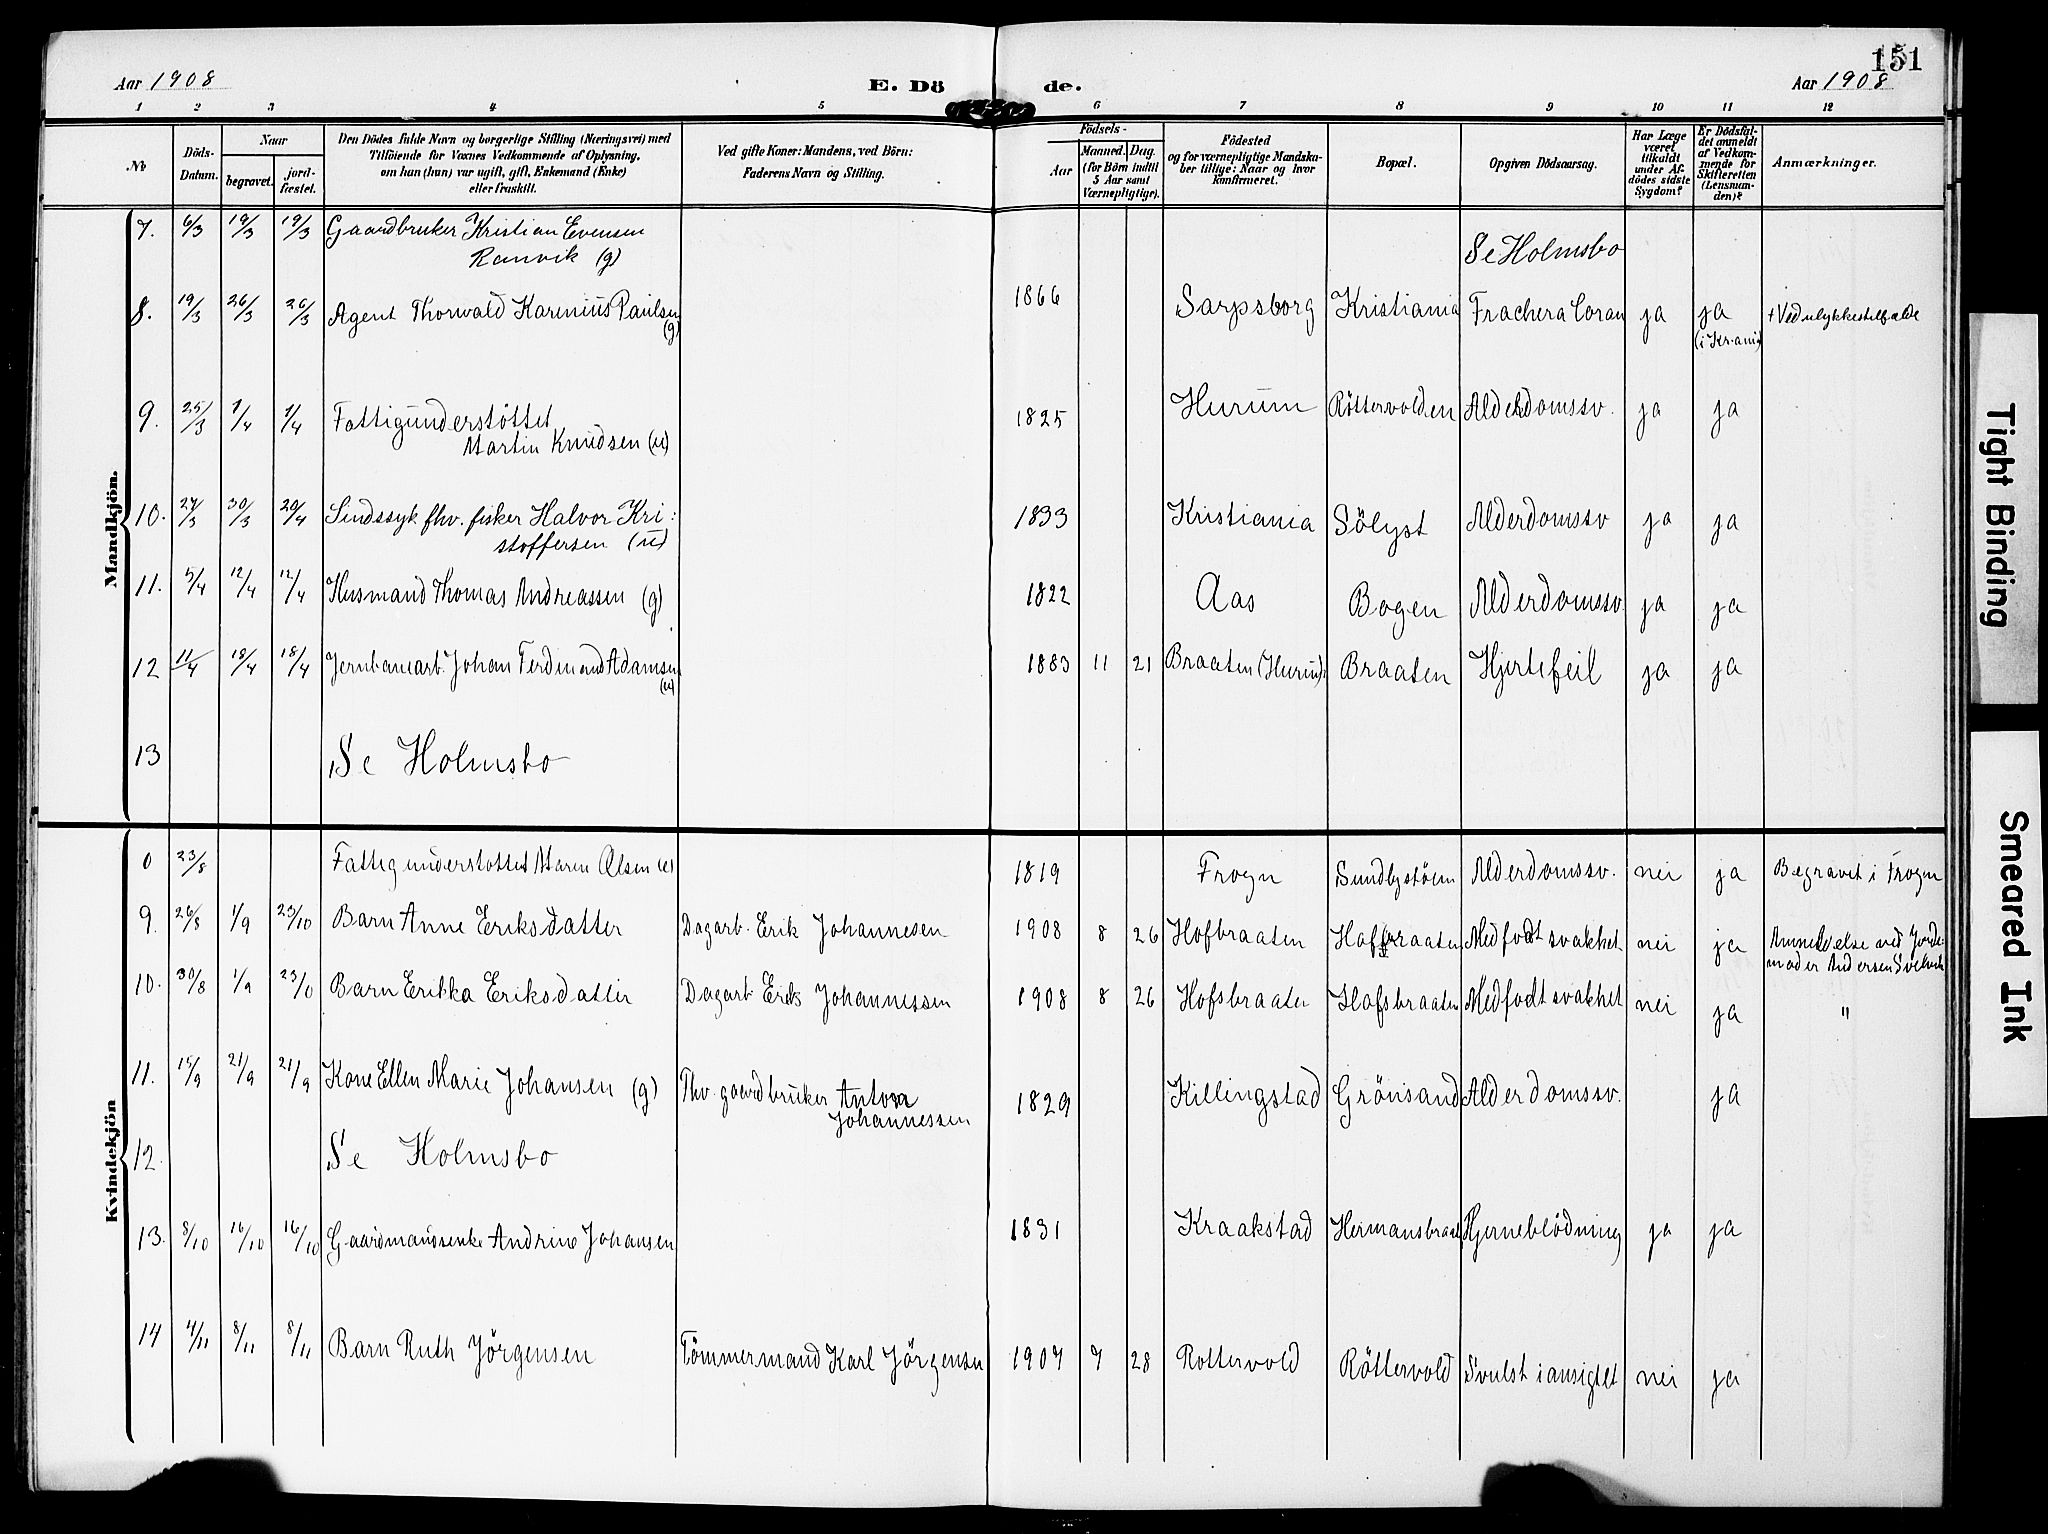 151
Aar 1908
E. Dö
de.
Aar 1908
1 2 3 4 5 6 7 8 9 10 11 12
No
Döds-
Datum.
Naar
begravet.
jord-
fæstet.
Den Dödes fulde Navn og borgerlige Stilling (Næringsvei) med
Tilföiende for Voxnes Vedkommende af Oplysning,
om han (hun) var ugift, gift, Enkemand (Enke)
eller fraskilt.
Ved gifte Koner: Mandens, ved Börn:
Faderens Navn og Stilling.
Födsels-
Aar
Maaned.
Dag.
(for Börn indtil
5 Aar samt
Værnepligtige).
Födested
og for værnepligtige Mandska-
ber tillige: Naar og hvor
konfirmeret.
Bopæl.
Opgiven Dödsaarsag.
Har Læge
været
tilkaldt
under Af-
dödes sidste
Sygdom?
Er Dödsfal-
det anmeldt
af Vedkom-
mende for
Skifteretten
(Lensman-
den)?
Anmærkninger.
Mandkjön.
7. 6/3 19/3 19/3 Gaardbruker Kristian Evensen
Ranvik (g)
Se Holmsbo
8. 19/3 26/3 26/3 Agent Thorvald Karenius Paulsen
(g)
1866 Sarpsborg Kristiania Frachera Coran ja ja
(i Kr.ania)
+ Ved ulykkestilfælde
9. 25/3 1/4 1/4 Fattigunderstöttet
Martin Knudsen (u)
1825 Hurum Röttervolden Alderdomssv. ja ja
10. 24/3 30/3 20/4 Sindssyk fhv. fisker Halvor Kri:
stoffersen (u)
1833 Kristiania Sölyst Alderdomssv ja ja
11. 5/4 12/4 12/4 Husmand Thomas Andreassen (g)
1822 Aas Bogen Alderdomssv. ja ja
12 11/4 18/4 18/4 Jernbanearb. Johan Ferdinand Adamsen
(u)
1883 11 21 Braaten (Hurum) Braaten Hjertefeil ja ja
13 Se Holmsbo
Kvindekjön
0 23/8 Fattigunderstøttet Maren Olsen (e) 1819 Frogn Alderdomssv. nei ja Begravet i Frogn
9. 26/8 1/9 23/10 Barn Anne Eriksdatter Dagarb. Erik Johannesen 1908 8 26 Hofbraaten Hofsbraaten Medfødt svakhet nei ja Anmeldelse ved Jorde:
moder Andersen Svelvik
10. 30/8 1/9 23/0 Barn Erikka Eriksdatter Dagarb. Erik Johannessen 1908 8 26 Hofsbraaten Hofsbraaten Medfødt svakhet nei ja "
11. 15/9 21/9 21/9 Kone Ellen Marie Johansen (g) Fhv. gaardbruker Anton
Johannessen
1829 Killingstad Grönsand Alderdomssv. ja
12. Se Holmsbo
13. 8/10 16/10 16/10 Gaardmandsenke Andrine Johansen 1831 Kraakstad Hermansbraat Hjerneblödning ja ja
14 4/11 8/11 8/11 Barn Ruth Jörgensen Tömmermand Karl Jörgensen 1907 7 28 Rottervold Röttervold Svulst i ansigtet nei ja
Tight Binding
Smeared Ink